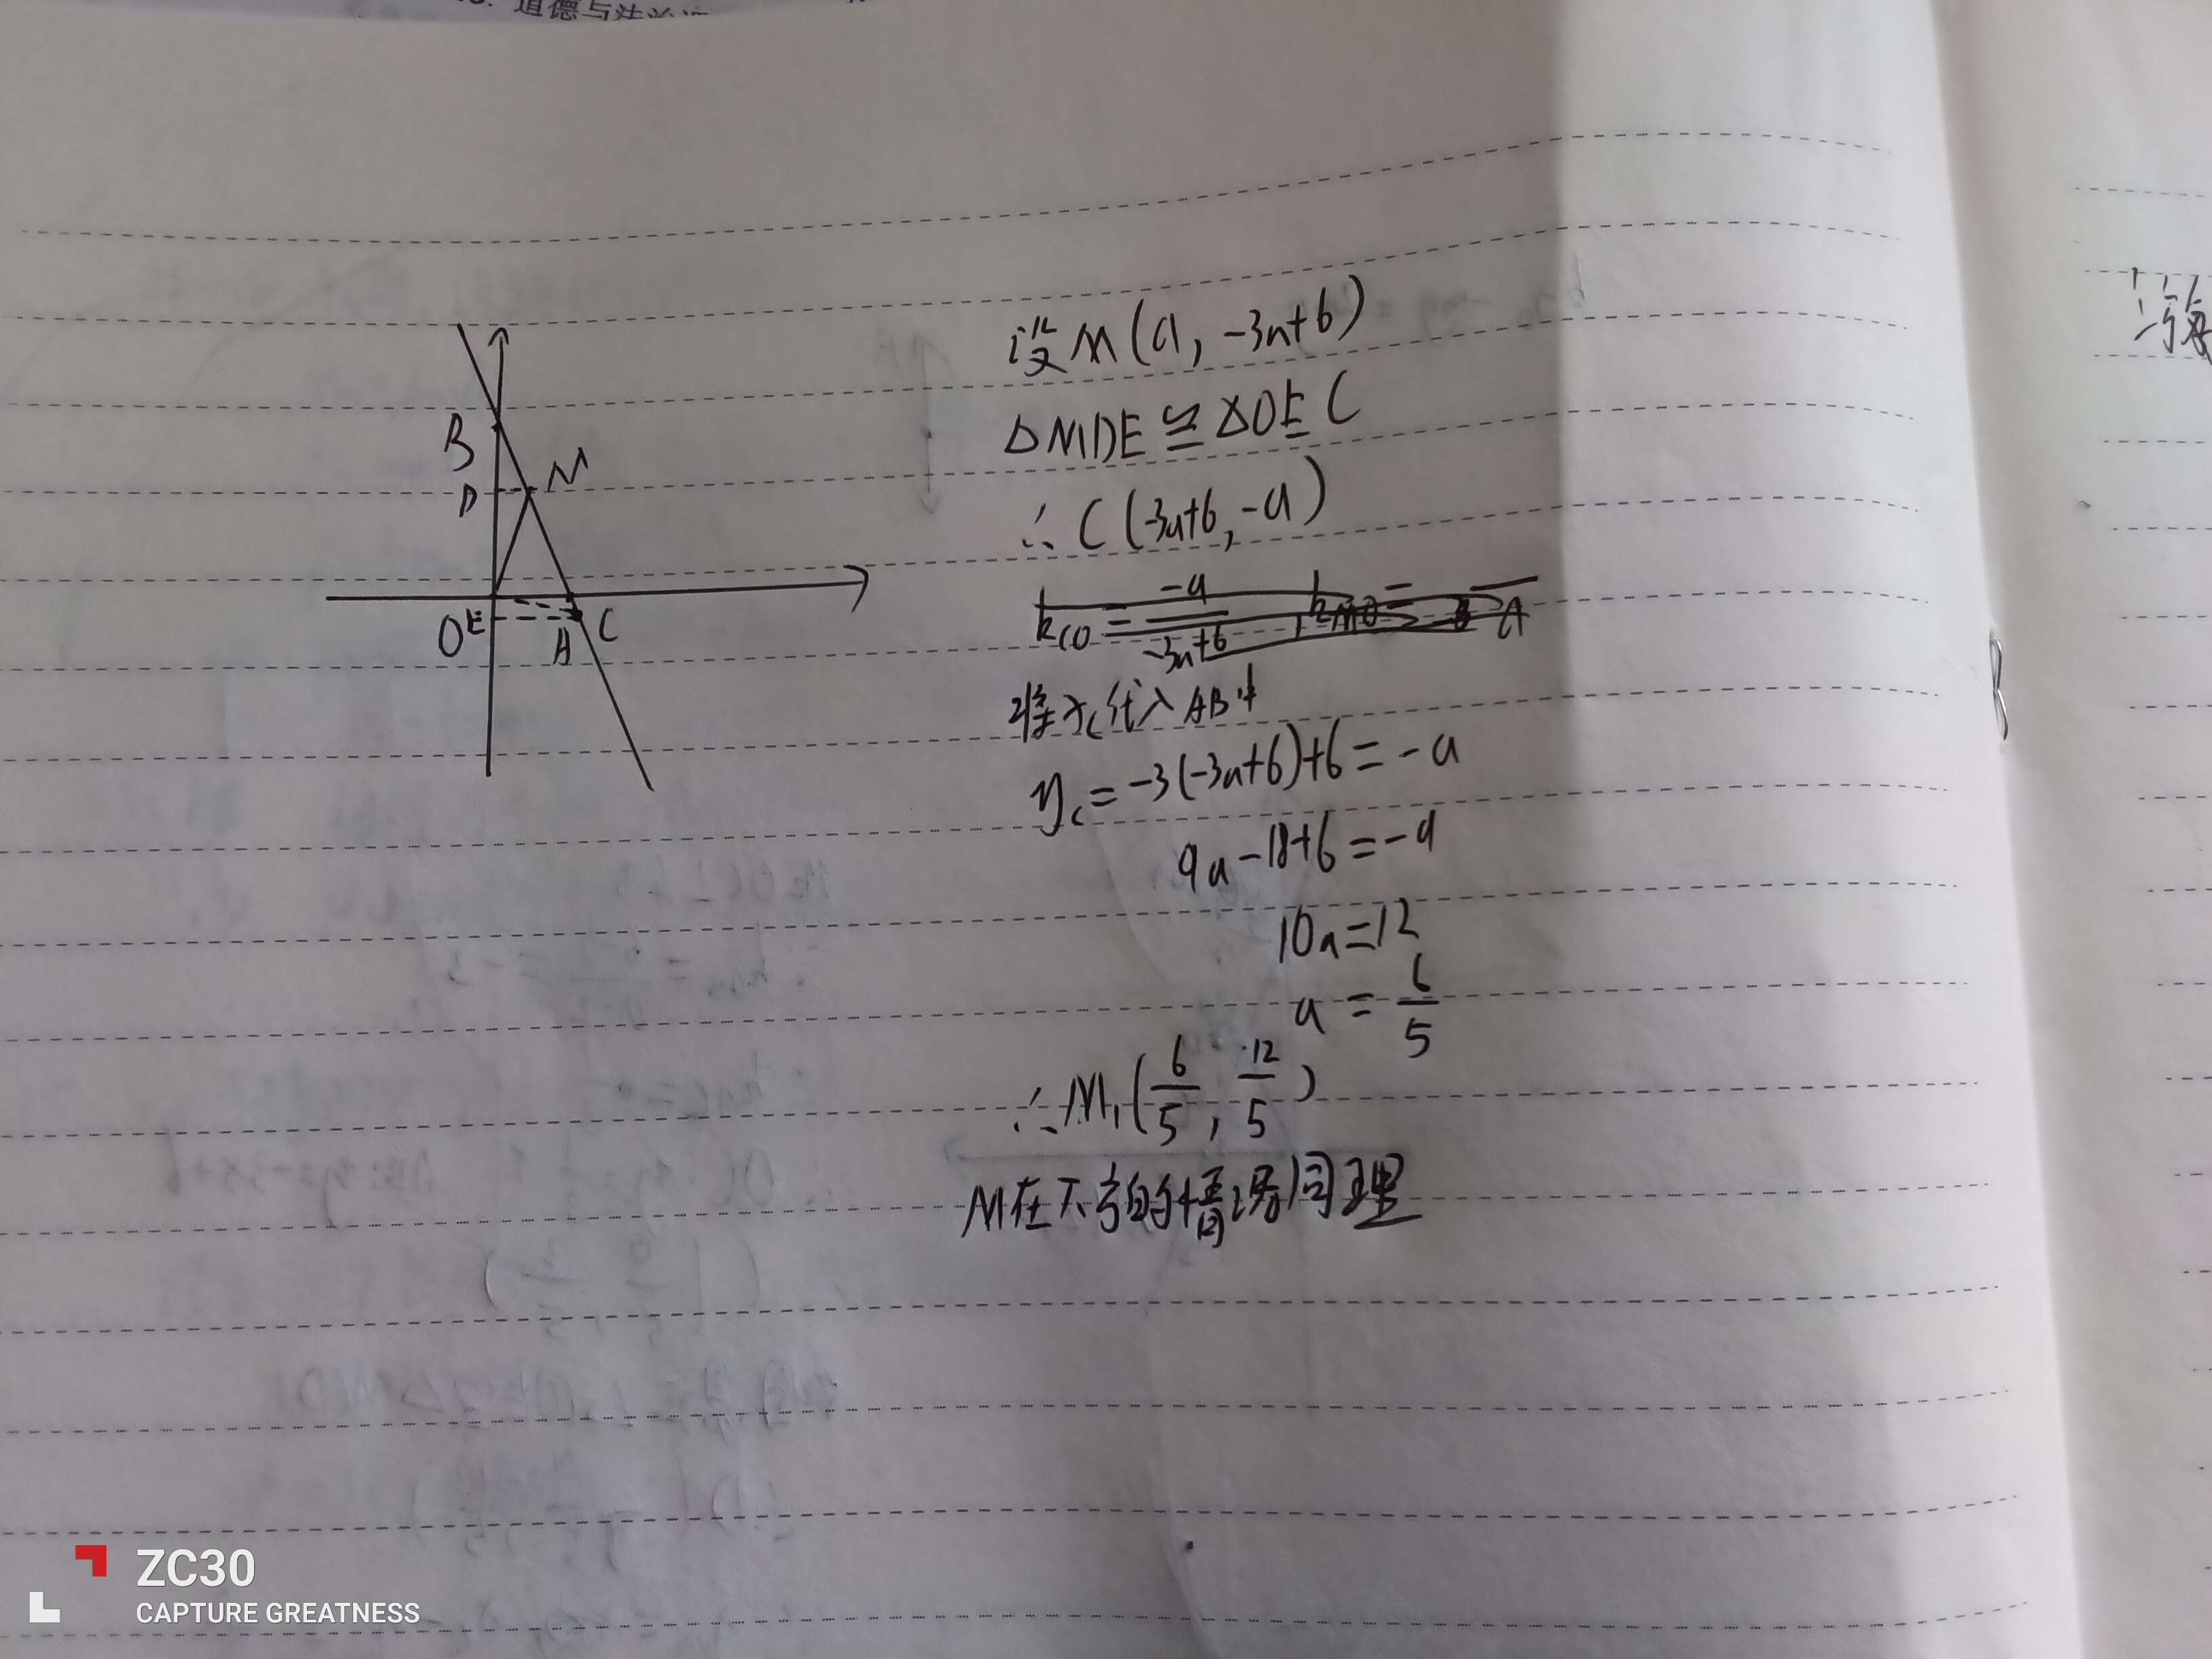 道德与法治
B
M
D
O
E
A
C
设M(a, -3a+6)
△MDE≌△OEC
∴C(-3a+6, -a)
k_CO = -a/-3a+6 k_MO =
将x_c代入AB中
y_c = -3(-3a+6)+6 = -a
9a-18+6 = -a
10a=12
a = 6/5
∴M₁(6/5, 12/5)
M在下方的情况同理
ZC30
CAPTURE GREATNESS